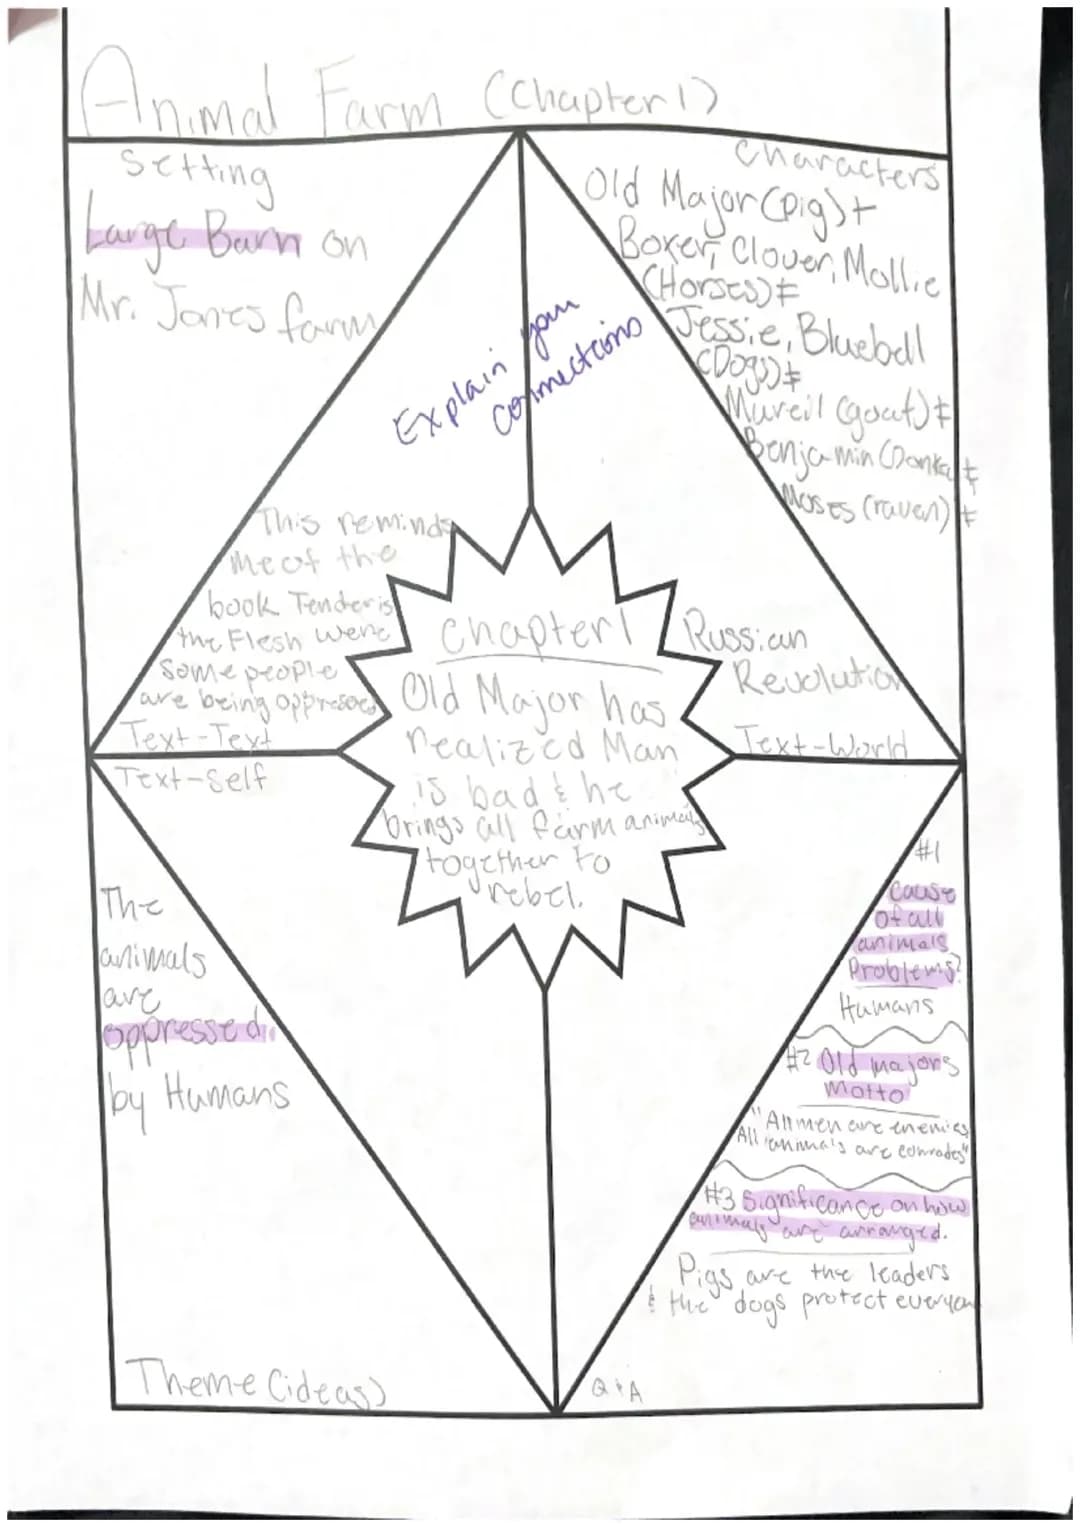 Animal Farm (Chapter 1)
Setting
Large Barn on
Mr. Jones farm
Characters
Old Major (pig) +
Boxer, Clover, Mollie
(Horses) ‡
Jessie, Bluebell
(Dogs) ‡
Mureil (goat) ‡
Benjamin (Donkey) ‡
Moses (raven) ‡
Explain your
connections
This reminds
me of the
book Tender is
the Flesh were
some people
are being oppressed
Text-Text
Russian
Revolution
Text-World
Chapter 1
Old Major has
realized Man
is bad & he
brings all farm animals
together to
rebel.
Text-Self
The
animals
are
oppressed
by Humans
Theme (ideas)
#1
Cause
of all
animals
Problems?
Humans
#2 Old majors
Motto
"All men are enemies
All animals are comrades"
#3 Significance on how
animals are arranged.
Pigs are the leaders
& the dogs protect everyone
Q+A